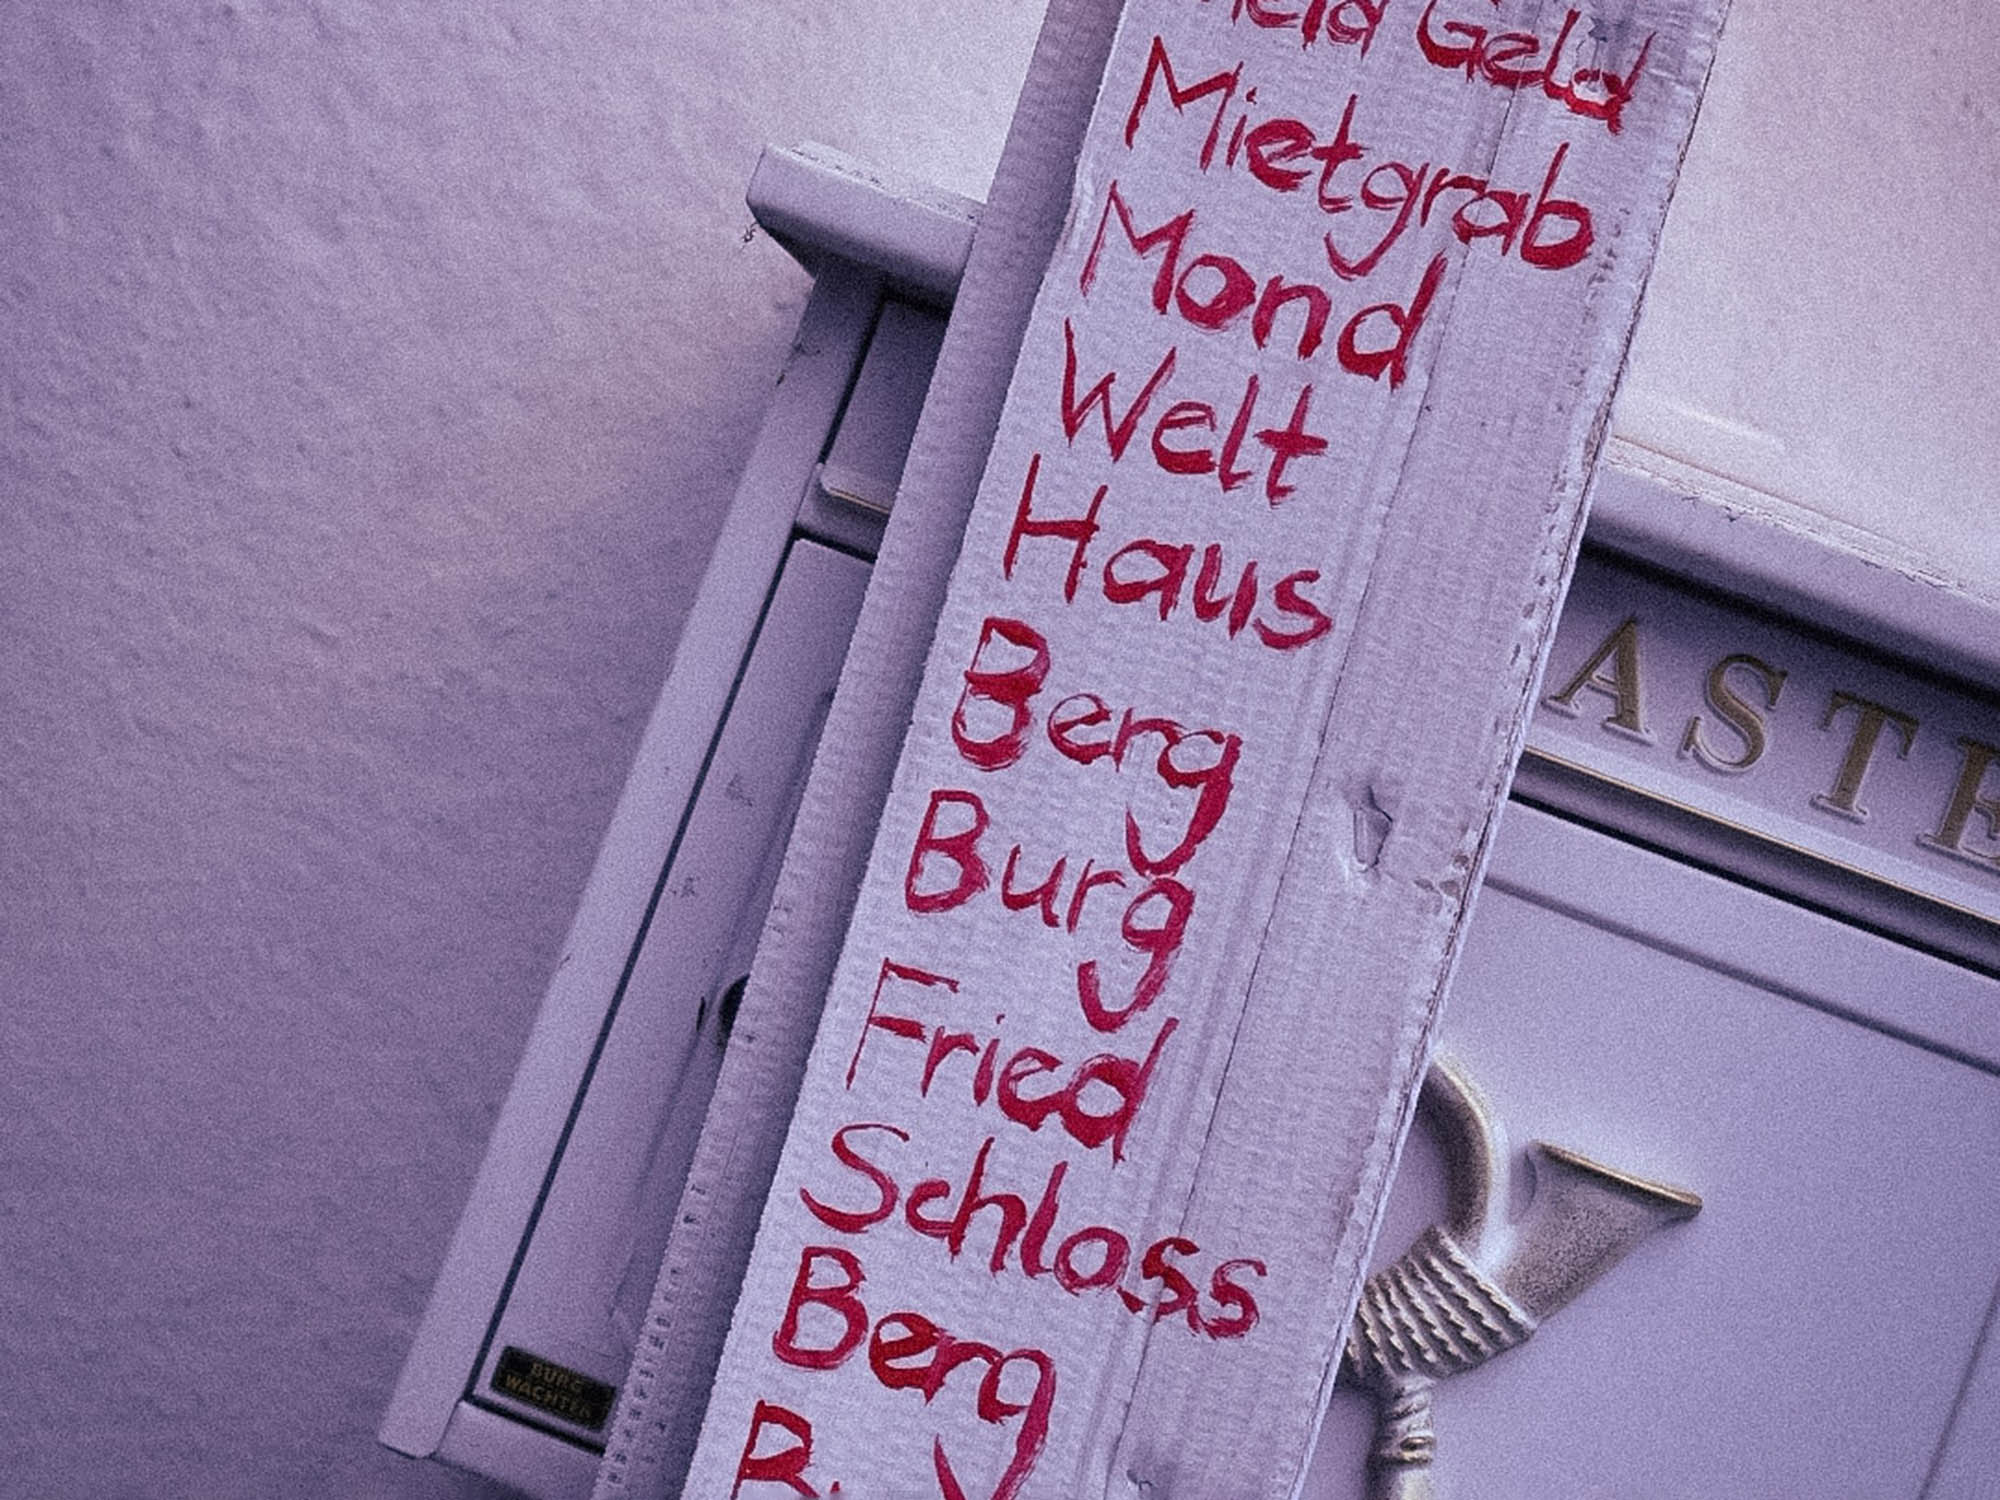 Geld
Mietgrab
Mond
Welt
Haus
Berg
Burg
Fried
Schloss
Berg
ASTE
BURG
WÄCHTER